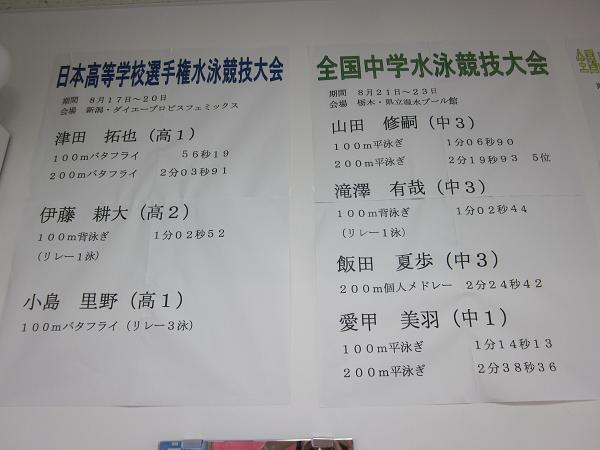 日本高等学校選手権水泳競技大会
期間 8月17日～20日
会場 新潟・ダイエープロビスフェニックス
津田 拓也(高1)
100mバタフライ 56秒19
200mバタフライ 2分03秒91
伊藤 耕大(高2)
100m背泳ぎ 1分02秒52
(リレー1泳)
小島 里野(高1)
100mバタフライ(リレー3泳)
全国中学水泳競技大会
期間 8月21日～23日
会場 栃木・県立温水プール館
山田 修嗣(中3)
100m平泳ぎ 1分06秒90
200m平泳ぎ 2分19秒93 5位
滝澤 有哉(中3)
100m背泳ぎ 1分02秒44
(リレー1泳)
飯田 夏歩(中3)
200m個人メドレー 2分24秒42
愛甲 美羽(中1)
100m平泳ぎ 1分14秒13
200m平泳ぎ 2分38秒36